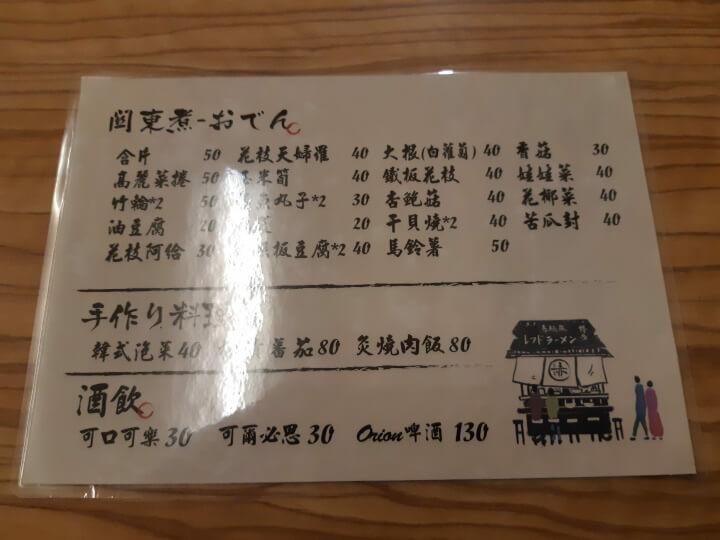 関東煮-おでん
含片 50 花枝天婦羅 40 大根(白蘿蔔) 40 香菇 30
高麗菜捲 50 玉米筍 40 鐵板花枝 40 娃娃菜 40
竹輪*2 50 丸子*2 30 杏鮑菇 40 花椰菜 40
油豆腐 20 20 干貝燒*2 40 苦瓜封 40
花枝阿給 30 板豆腐*2 40 馬鈴薯 50
手作り料理
韓式泡菜 40 番茄 80 炙燒肉飯 80
酒飲
可口可樂 30 可爾必思 30 Orion啤酒 130
レッドラーメン
赤